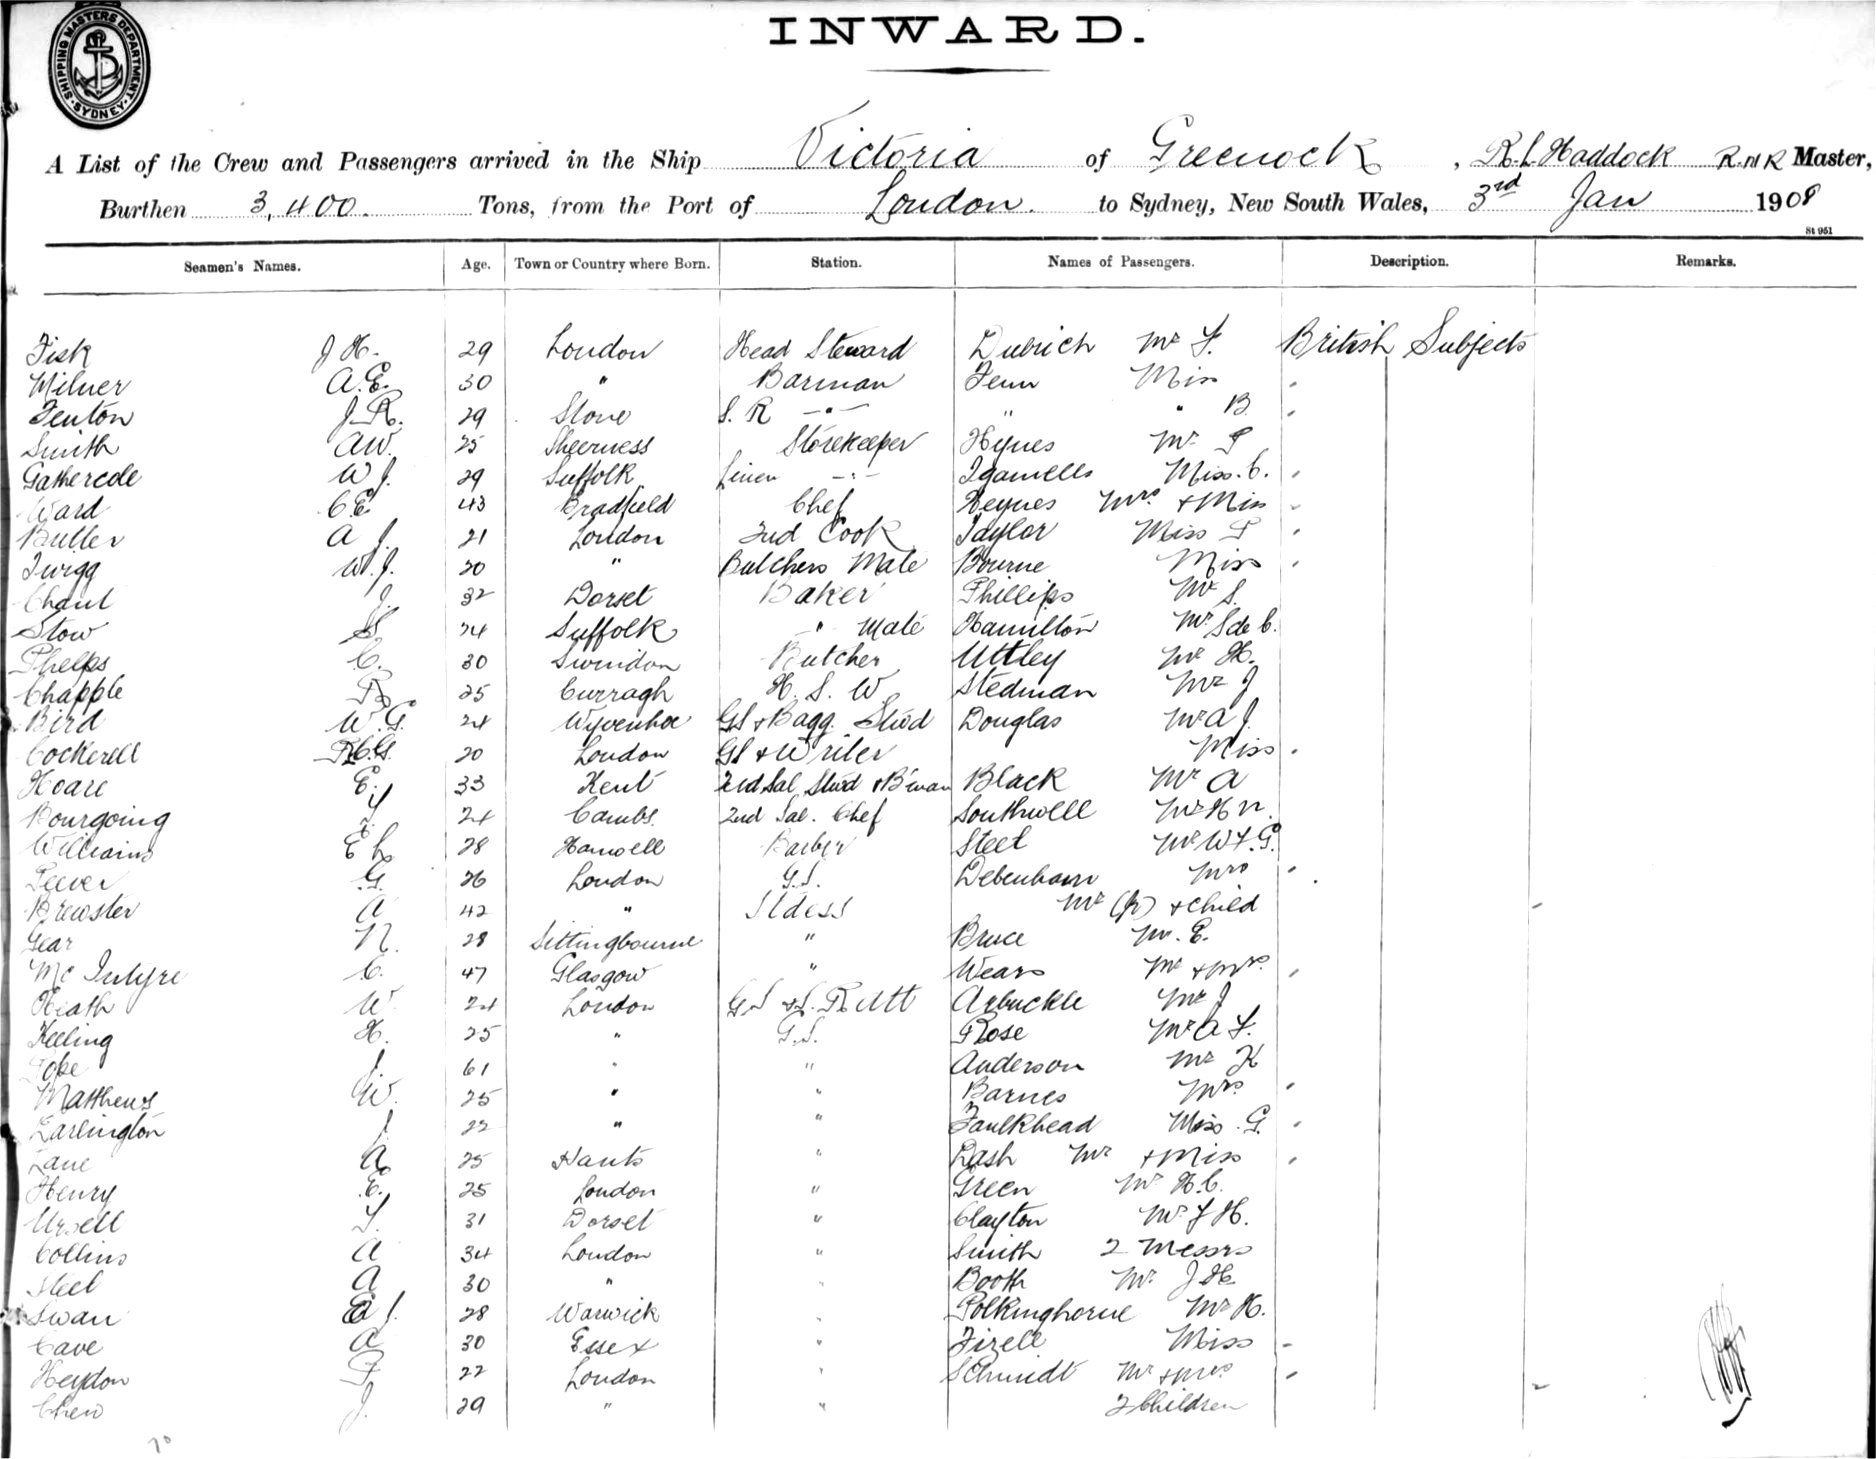 SHIPPING MASTERS DEPARTMENT · SYDNEY ·
INWARD.
A List of the Crew and Passengers arrived in the Ship Victoria of Greenock, R. L. Haddock R.N.R Master,
Burthen 3,400. Tons, from the Port of London. to Sydney, New South Wales, 3rd Jan 1908
St 951
Seamen's Names. Age. Town or Country where Born. Station. Names of Passengers. Description. Remarks.
Fisk J H. 29 London Head Steward Dubrich Mr F. British Subjects
Milner A. E. 30 " Barman Fenn Miss
Fenton J. R. 29 Stone S. R - " - " " B
Smith A W. 25 Sheerness Storekeeper Hynes Mr P
Gathercole W J. 29 Suffolk Linen - " - Igamells Miss. C.
Ward C E 43 Bradfield Chef Heynes Mrs + Miss
Butler A J. 21 London 2nd Cook Taylor Miss P
Twigg W. J. 20 " Butchers Mate Bourne Miss
Chant J. 32 Dorset Baker Phillips Mr S.
Stow S 24 Suffolk " Mate Hamilton Mr S de C.
Phelps C. 30 Swindon Butcher Uttley Mr H.
Chapple R 25 Curragh H. S. W Stedman Mr J
Bird W. G. 24 Wyvenhoe GS + Bagg. Stwd Douglas Mr A J.
Cockerell R C G. 20 London GS + Writer Miss
Hoare E. 33 Kent 2nd Sal. Stwd + B'man Black Mr A
Bourgoing J. 24 Cambs. 2nd Sal. Chef Southwell Mr H N.
Williams E L 28 Hanwell Barber Steel Mr W F. G.
G. 26 London G.S. Debenham Mrs
Brewster A 42 " Stdess Mr (Jr) + child
Gear N. 28 Sittingbourne " Bruce Mr. E.
Mc Intyre C. 47 Glasgow " Wears Mr + Mrs.
Heath W. 24 London G.S Arbuckle Mr J
Keeling H. 25 " G.S. Rose Mr A F.
Pope J 61 " " Anderson Mr K
Matthews W. 25 " " Barnes Mrs.
Earlington J. 22 " " Faulkhead Miss. G.
Lane A. 25 Hants " Dash Mr + Miss
Henry E. 25 London " Green Mr H. C.
Ursell F. 31 Dorset " Clayton Mr F H.
Collins A 34 London " Smith 2 Messrs
Steel A 30 " " Booth Mr. J H.
Swan J. 28 Warwick " Polkinghorne Mr H.
Cave A 30 Essex " Fizell Miss
Heydon F 22 London " Schmidt Mr + Mrs
Chew J. 29 " " 2 Children
70